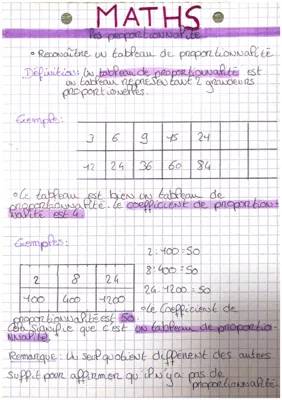 MATHS
La proportionnalité
• Reconnaître un tableau de proportionnalité
Définition: Un tableau de proportionnalité est
un tableau représentant 2 grandeurs
proportionnelles.
Exemple:
3 6 9 15 24
12 24 36 60 84
• Ce tableau est bien un tableau de
proportionnalité. Le coefficient de proportion-
nalité est 4.
Exemples:
2 : 100 = 50
2 8 24
8 : 400 = 50
100 400 1200
24 : 1200 = 50
• Le Coefficient de
proportionnalité est 50
Cela signifie que c'est un tableau de proportio-
nnalité.
Remarque: Un seul quotient différent des autres
suffit pour affirmer qu'il n'y a pas de
proportionnalité.